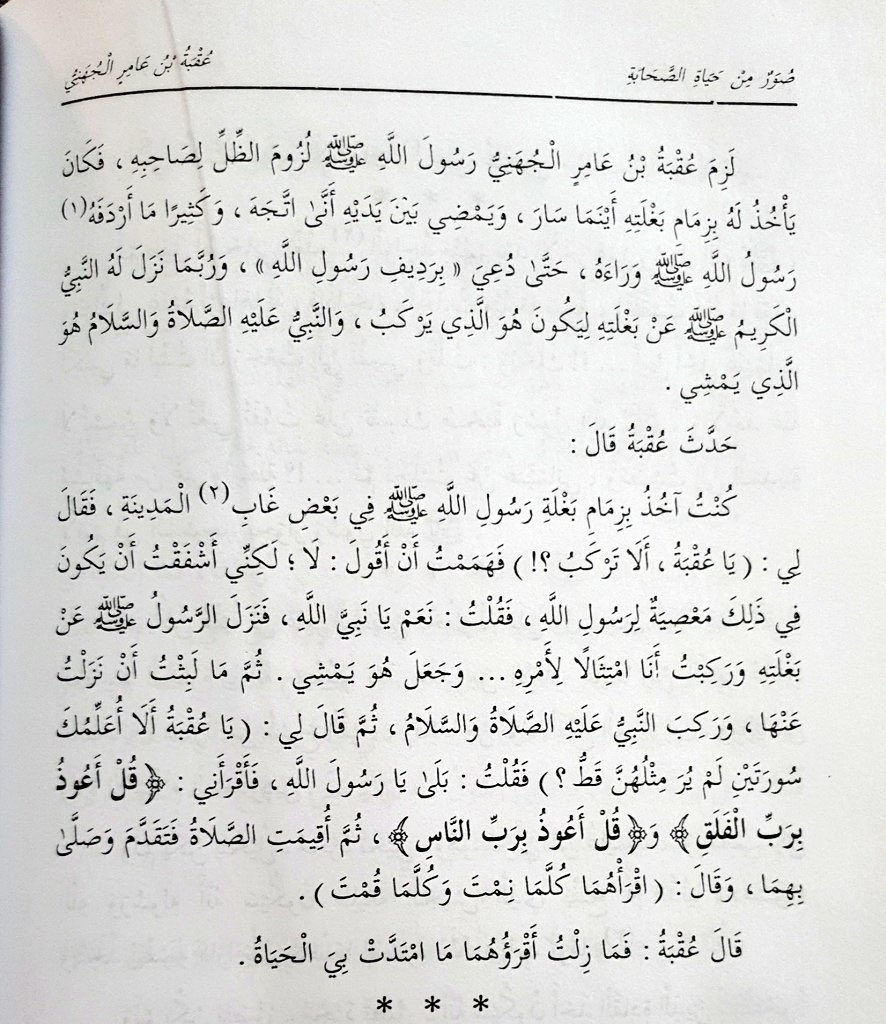 صُوَرٌ مِنْ حَيَاةِ الصَّحَابَةِ
عُقْبَةُ بْنُ عَامِرٍ الْجُهَنِيُّ
لَزِمَ عُقْبَةُ بْنُ عَامِرٍ الْجُهَنِيُّ رَسُولَ اللَّهِ ﷺ لُزُومَ الظِّلِّ لِصَاحِبِهِ ، فَكَانَ
يَأْخُذُ لَهُ بِزِمَامِ بَغْلَتِهِ أَيْنَمَا سَارَ ، وَيَمْضِي بَيْنَ يَدَيْهِ أَنَّىٰ اتَّجَهَ ، وَكَثِيرًا مَا أَرْدَفَهُ(١)
رَسُولُ اللَّهِ ﷺ وَرَاءَهُ ، حَتَّىٰ دُعِيَ « بِرَدِيفِ رَسُولِ اللَّهِ » ، وَرُبَّمَا نَزَلَ لَهُ النَّبِيُّ
الْكَرِيمُ ﷺ عَنْ بَغْلَتِهِ لِيَكُونَ هُوَ الَّذِي يَرْكَبُ ، وَالنَّبِيُّ عَلَيْهِ الصَّلَاةُ وَالسَّلَامُ هُوَ
الَّذِي يَمْشِي .
حَدَّثَ عُقْبَةُ قَالَ :
كُنْتُ آخُذُ بِزِمَامِ بَغْلَةِ رَسُولِ اللَّهِ ﷺ فِي بَعْضِ غَابِ(٢) الْمَدِينَةِ ، فَقَالَ
لِي : ( يَا عُقْبَةُ ، أَلَا تَرْكَبُ ؟! ) فَهَمَمْتُ أَنْ أَقُولَ : لَا ؛ لَكِنِّي أَشْفَقْتُ أَنْ يَكُونَ
فِي ذَلِكَ مَعْصِيَةٌ لِرَسُولِ اللَّهِ ، فَقُلْتُ : نَعَمْ يَا نَبِيَّ اللَّهِ ، فَنَزَلَ الرَّسُولُ ﷺ عَنْ
بَغْلَتِهِ وَرَكِبْتُ أَنَا امْتِثَالًا لِأَمْرِهِ ... وَجَعَلَ هُوَ يَمْشِي . ثُمَّ مَا لَبِثْتُ أَنْ نَزَلْتُ
عَنْهَا ، وَرَكِبَ النَّبِيُّ عَلَيْهِ الصَّلَاةُ وَالسَّلَامُ ، ثُمَّ قَالَ لِي : ( يَا عُقْبَةُ أَلَا أُعَلِّمُكَ
سُورَتَيْنِ لَمْ يُرَ مِثْلُهُنَّ قَطُّ ؟ ) فَقُلْتُ : بَلَىٰ يَا رَسُولَ اللَّهِ ، فَأَقْرَأَنِي : ﴿ قُلْ أَعُوذُ
بِرَبِّ الْفَلَقِ ﴾ وَ﴿ قُلْ أَعُوذُ بِرَبِّ النَّاسِ ﴾ ، ثُمَّ أُقِيمَتِ الصَّلَاةُ فَتَقَدَّمَ وَصَلَّىٰ
بِهِمَا ، وَقَالَ : ( اقْرَأْهُمَا كُلَّمَا نِمْتَ وَكُلَّمَا قُمْتَ ) .
قَالَ عُقْبَةُ : فَمَا زِلْتُ أَقْرَؤُهُمَا مَا امْتَدَّتْ بِيَ الْحَيَاةُ .
* * *